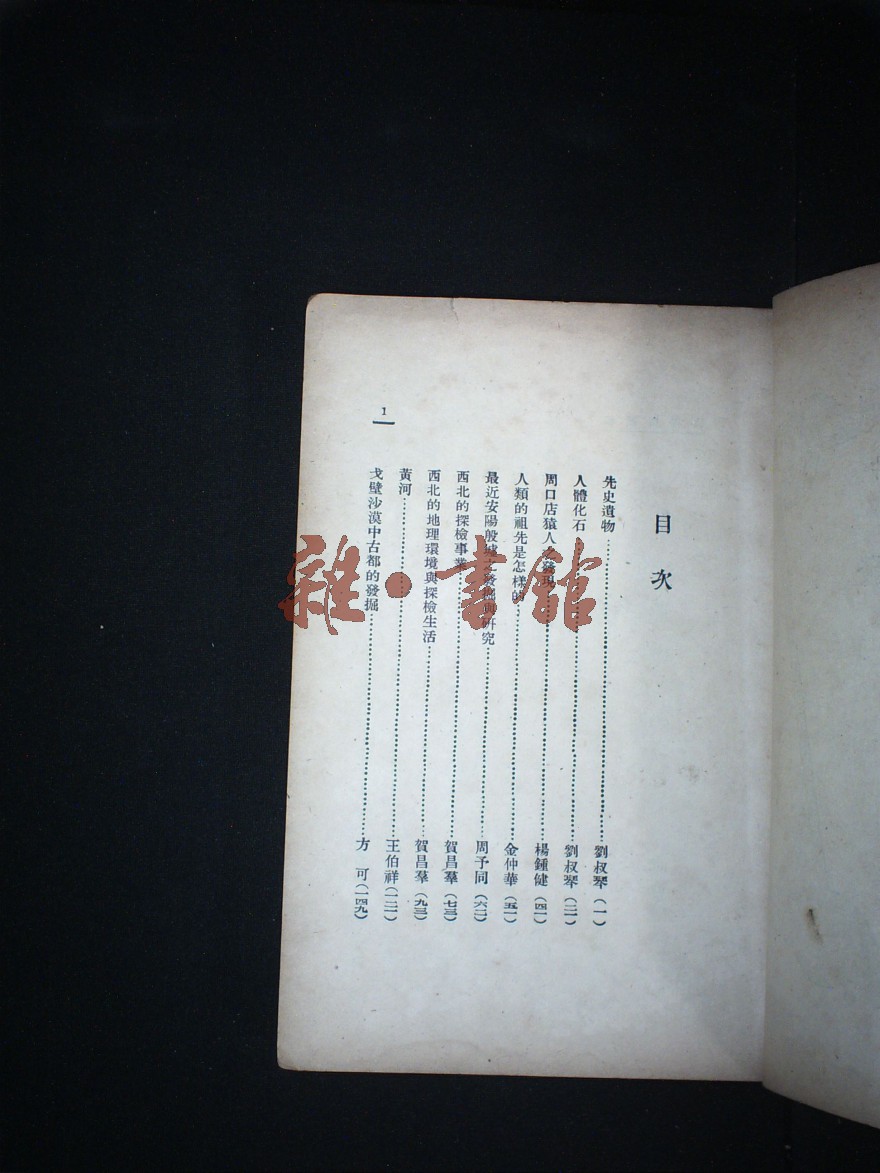 目次
先史遺物……劉叔琴(一)
人體化石……劉叔琴(二一)
周口店猿人之發現……楊鍾健(四一)
人類的祖先是怎樣的……金仲華(五一)
最近安陽殷墟之發掘與研究……周予同(六二)
西北的探檢事業……賀昌羣(七三)
西北的地理環境與探檢生活……賀昌羣(九三)
黃河……王伯祥(一二一)
戈壁沙漠中古都的發掘……方可(一四九)
1
雜·書館